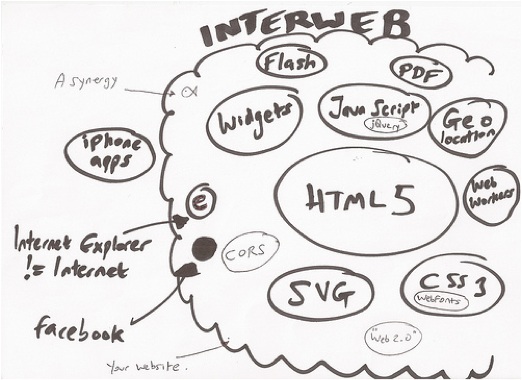 INTERWEB
Flash
PDF
A synergy
Widgets
JavaScript
jQuery
Geo
location
iphone
apps
HTML5
Web
Workers
e
Internet Explorer
!= Internet
CORS
facebook
SVG
CSS3
Webfonts
"Web 2.0"
Your website.